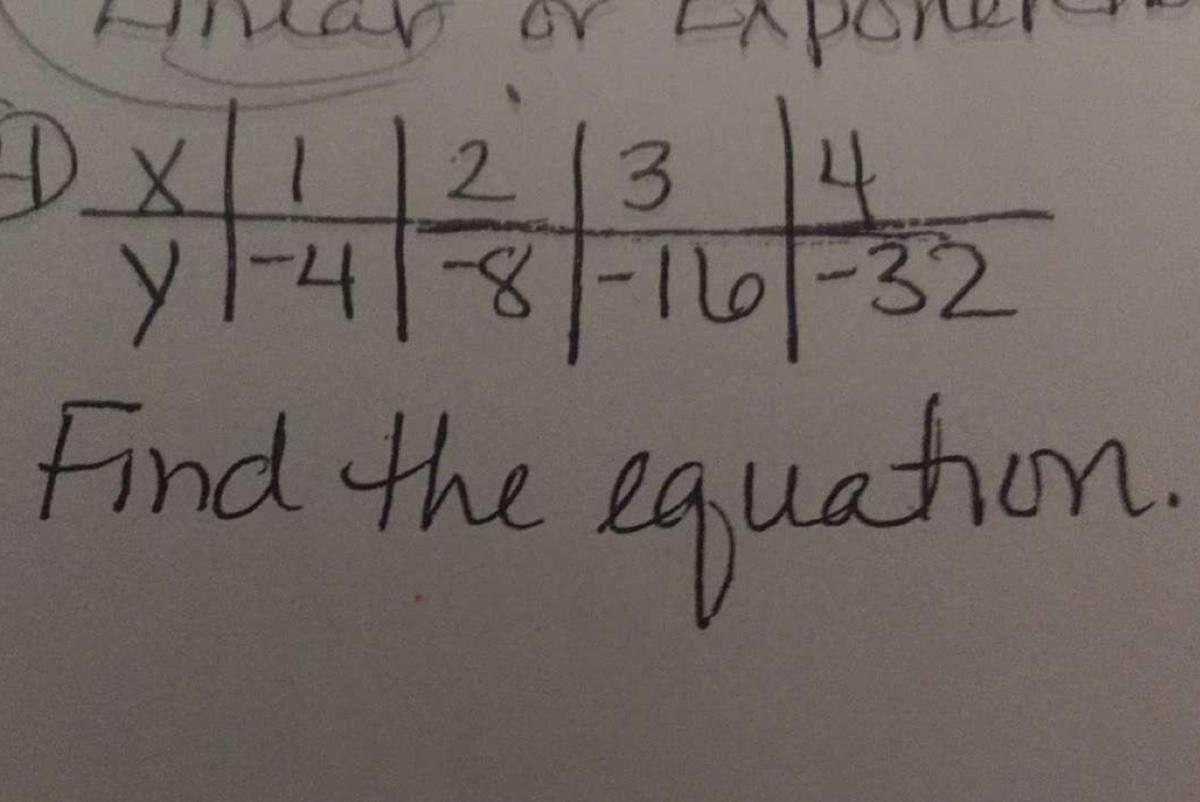 Linear or Exponen
1) x | 1 | 2 | 3 | 4
y | -4 | -8 | -16 | -32
Find the equation.